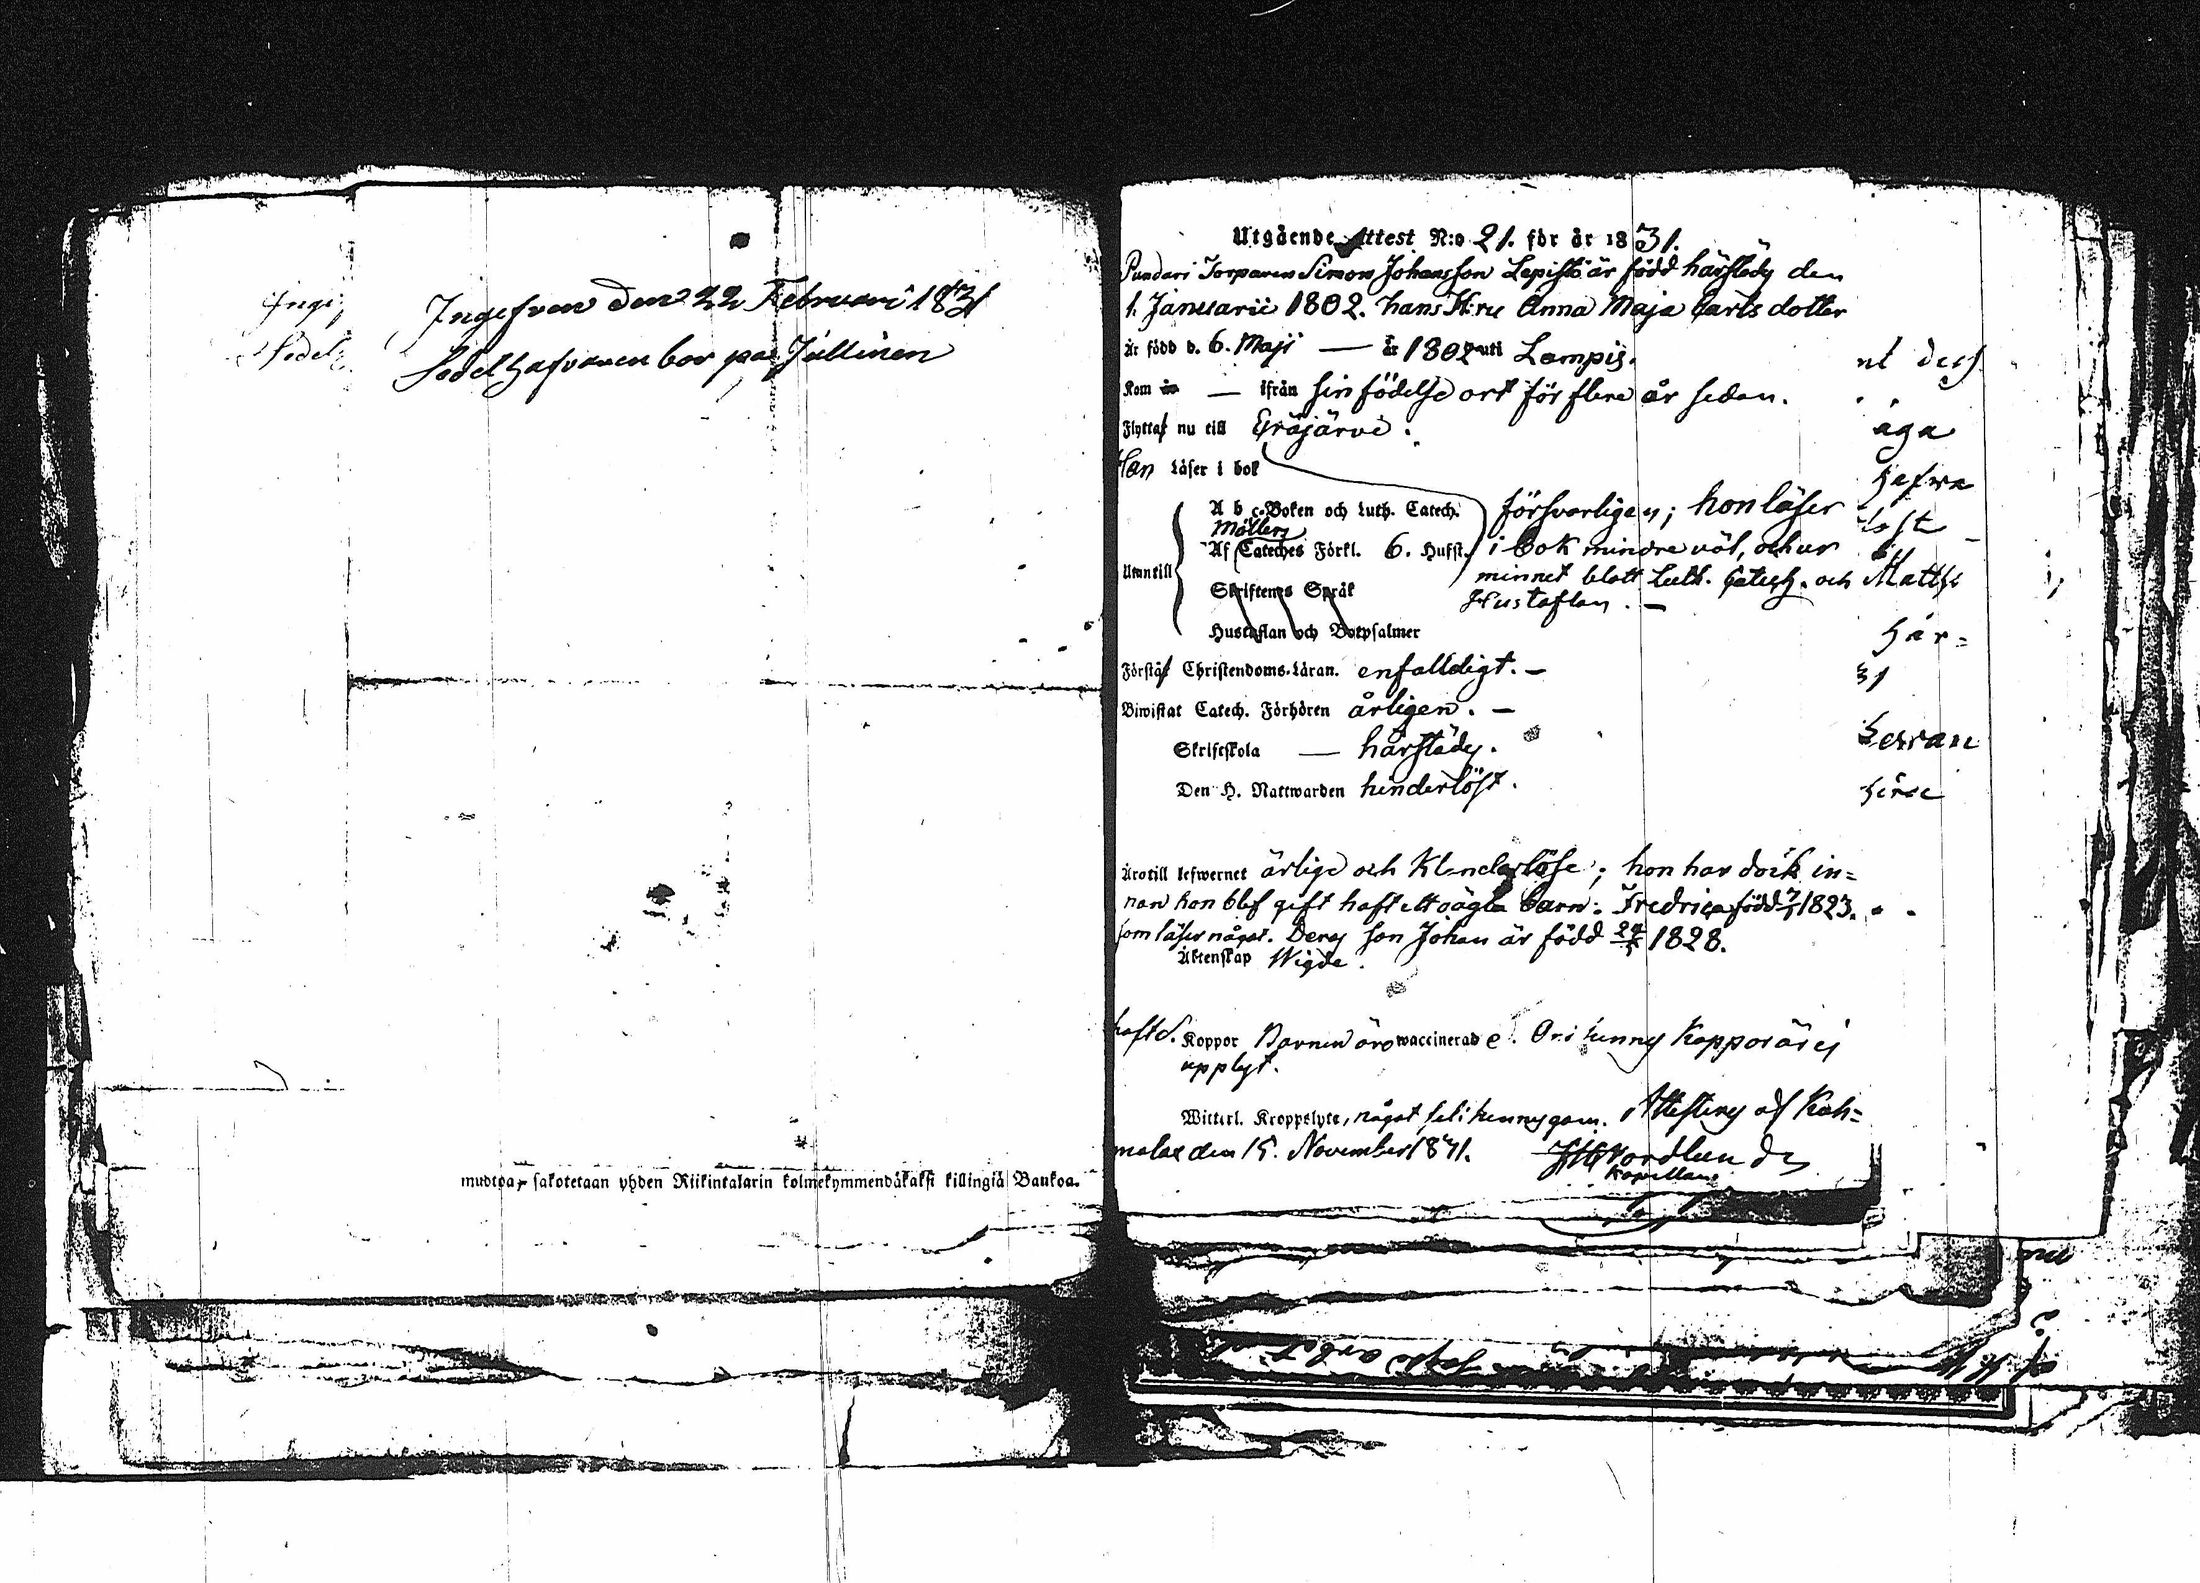 Inge
Sedel
Ingefven den 22 Februari 1831
Sedelhafvaren bor på Jullinen
mudtoa, sakotetaan yhden Riikintalarin kolmekymmendäkaksi killingiä Baukoa.
Utgående Attest N:o 21. för år 1831.
Torparen Simon Johansson Lepistö är född härstädes den
1. Januarii 1802. hans H:ru Anna Maja Carlsdotter
Är född d. 6. Maji — år 1802 uti Lampis.
Kom — ifrån sin födelse ort för flere år sedan.
Flytta nu till Eräjärvi.
Han läser i bok
A b c-Boken och Luth. Catech. försvarligen; hon läser
Möllers
Utantill Af Cateches Förkl. 6. Hufst. i bok mindre väl, och ur
minnet blott Luth. Catech. och
Skriftenes Språk Hustaflan. —
Hustaflan och Botpsalmer
Förstå Christendoms-Läran. enfalldigt. —
Biwistat Catech. Förhören årligen. —
Skriftskola — härstädes.
Den H. Nattwarden hinderlöst.
Äro till lefwernet ärlige och Klanderlöse; hon har dock in=
nan hon blef gift haft ett oägta barn: Fredrica född 1823.
som läser något. Deras son Johan är född 1828.
Äktenskap Wigde.
haft d. Koppor Barnen äro waccinerade. Om hennes Koppor är ej
upplyst.
Witterl. Kroppslyte, något fel i hennes gom. Attesteras af Kuh=
malax den 15. November 1831.
Nordlund
Kapellan.
äga
hafwa
Matths
här=
31
Herran